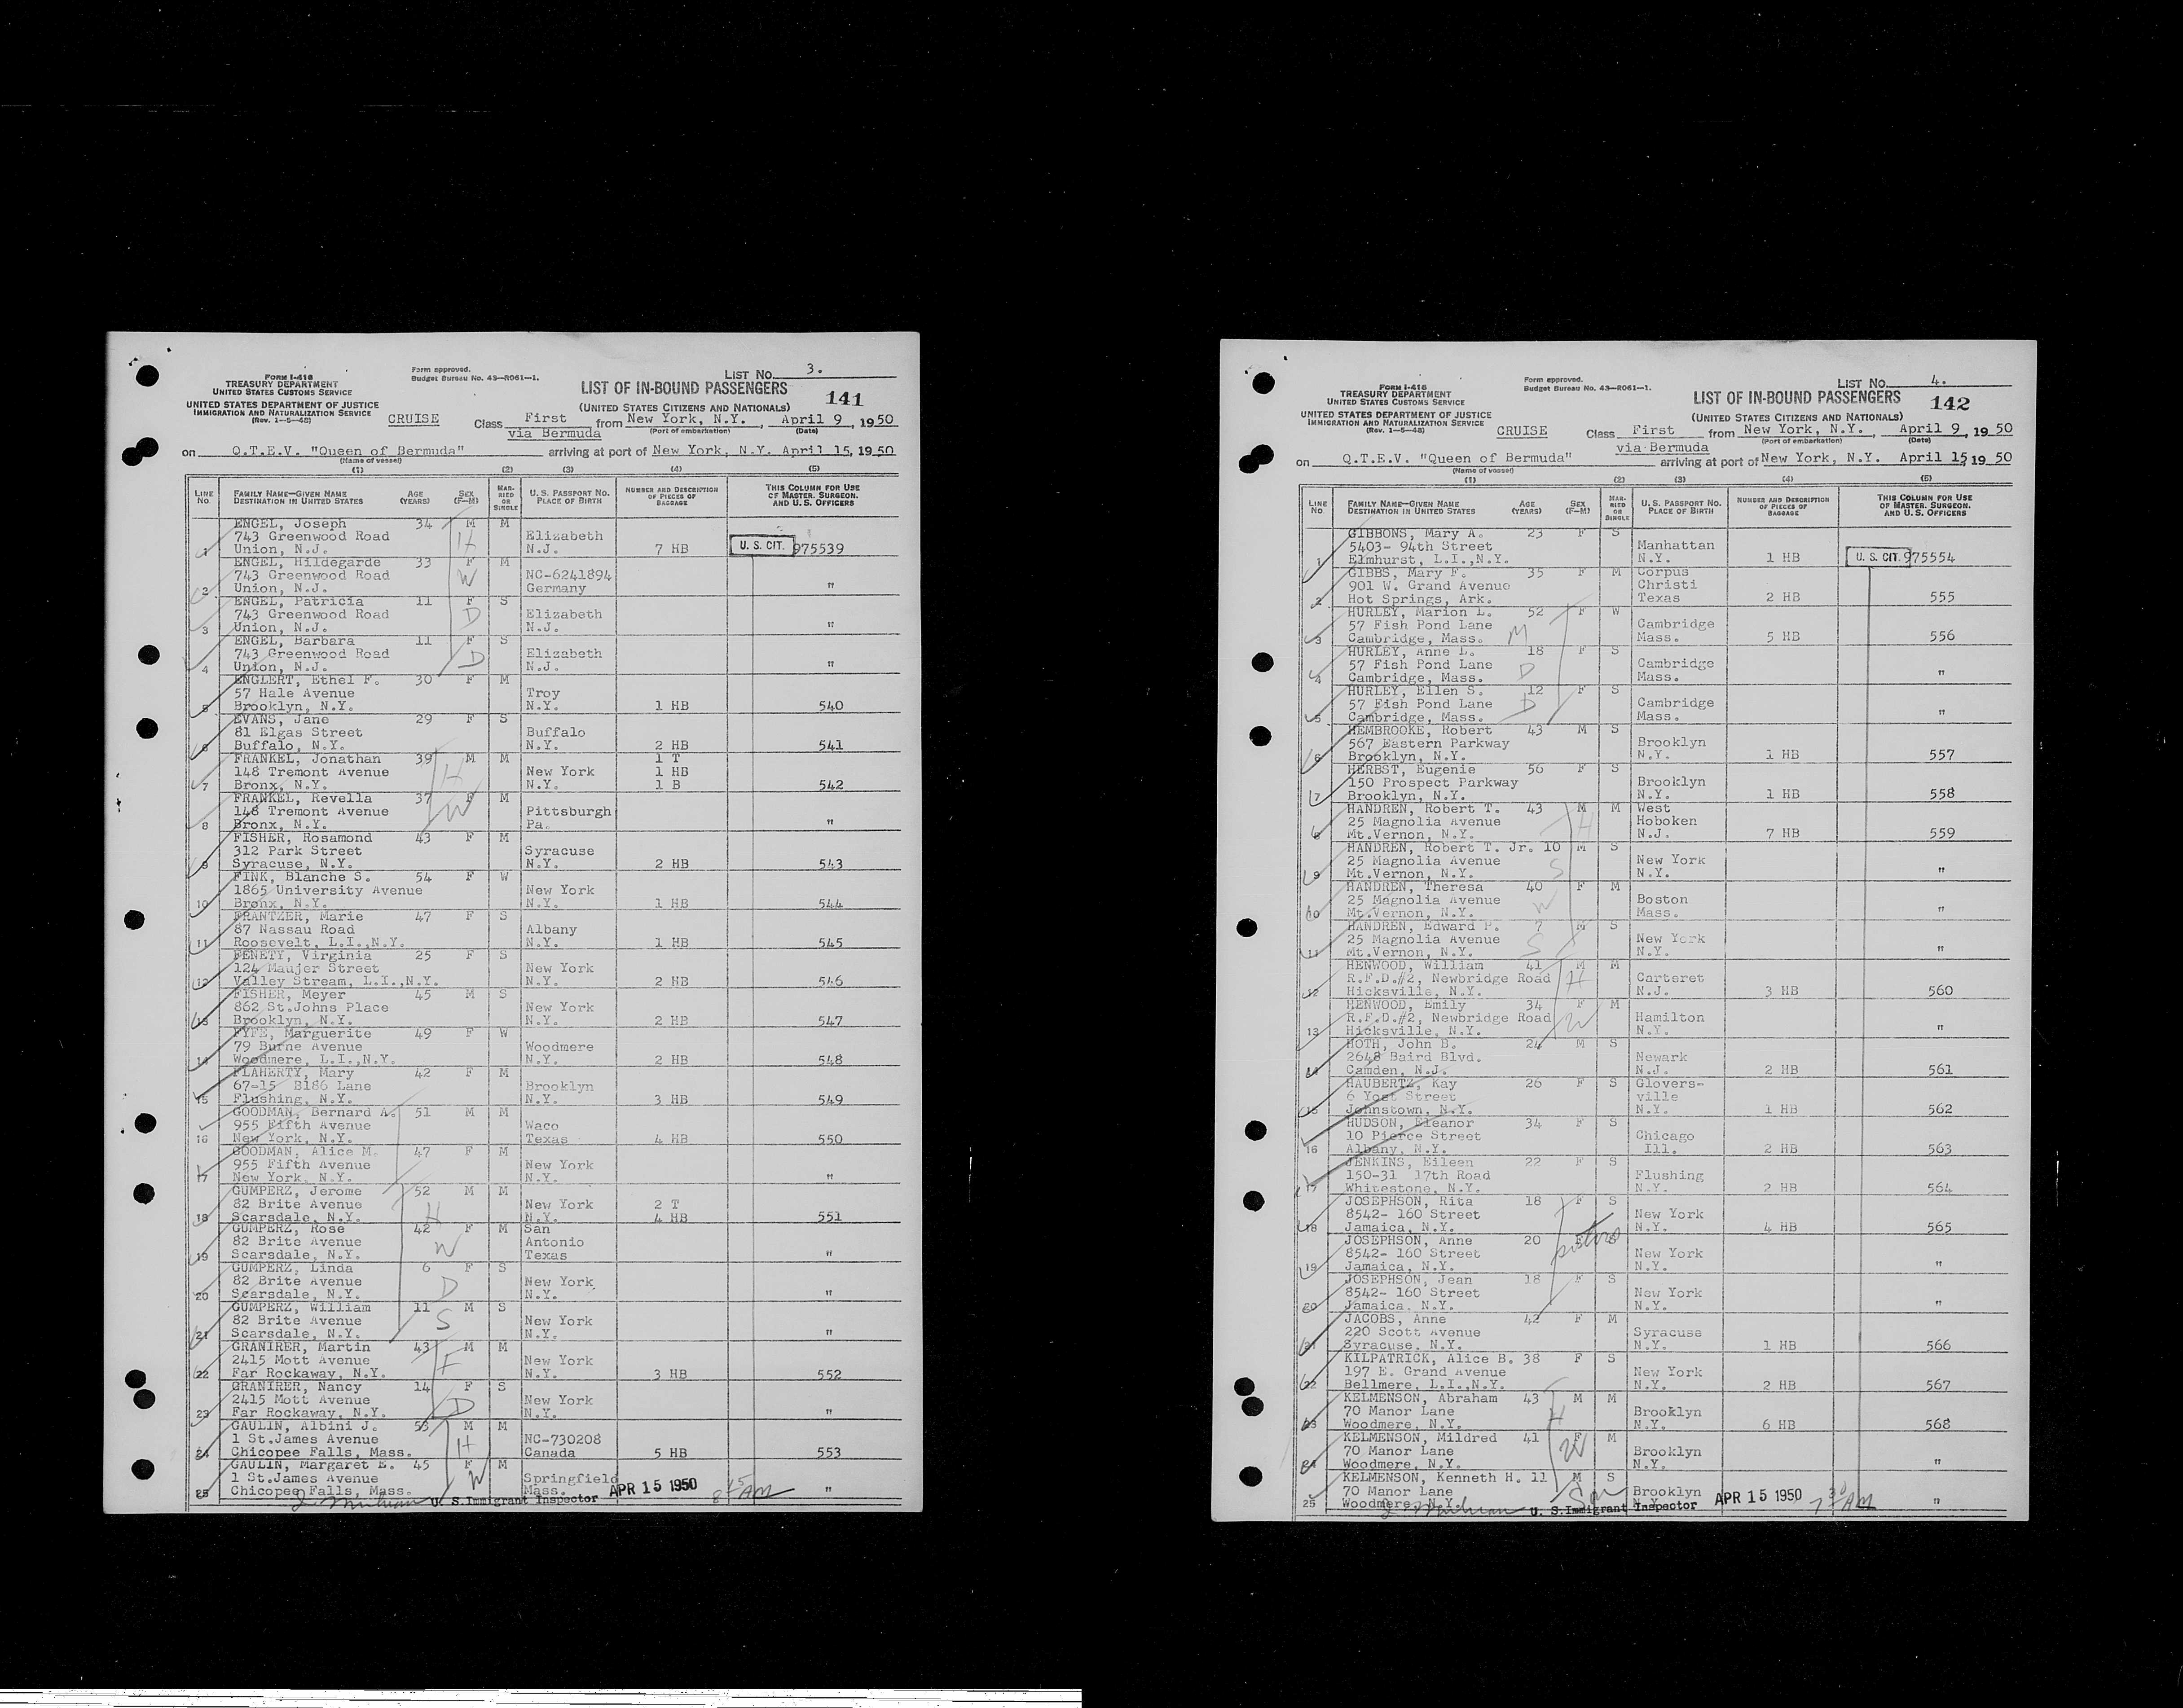 FORM I-418
TREASURY DEPARTMENT
UNITED STATES CUSTOMS SERVICE
UNITED STATES DEPARTMENT OF JUSTICE
IMMIGRATION AND NATURALIZATION SERVICE
(Rev. 1-5-48)
Form approved.
Budget Bureau No. 43-R061-1.
LIST No. 3.
LIST OF IN-BOUND PASSENGERS
141
(UNITED STATES CITIZENS AND NATIONALS)
CRUISE Class First from New York, N.Y., April 9, 1950
via Bermuda (Port of embarkation) (Date)
on Q.T.E.V. "Queen of Bermuda" arriving at port of New York, N.Y. April 15, 1950
(Name of vessel)
(1) (2) (3) (4) (5)
LINE No. FAMILY NAME—GIVEN NAME DESTINATION IN UNITED STATES AGE (YEARS) SEX (F-M) MARRIED OR SINGLE U.S. PASSPORT NO. PLACE OF BIRTH NUMBER AND DESCRIPTION OF PIECES OF BAGGAGE THIS COLUMN FOR USE OF MASTER, SURGEON, AND U.S. OFFICERS
ENGEL, Joseph 34 M M
743 Greenwood Road H Elizabeth
1 Union, N.J. N.J. 7 HB U. S. CIT. 975539
ENGEL, Hildegarde 33 F M
743 Greenwood Road W NC-6241894
2 Union, N.J. Germany "
ENGEL, Patricia 11 F S
743 Greenwood Road D Elizabeth
3 Union, N.J. N.J. "
ENGEL, Barbara 11 F S
743 Greenwood Road D Elizabeth
4 Union, N.J. N.J. "
ENGLERT, Ethel F. 30 F M
57 Hale Avenue Troy
5 Brooklyn, N.Y. N.Y. 1 HB 540
EVANS, Jane 29 F S
81 Elgas Street Buffalo
6 Buffalo, N.Y. N.Y. 2 HB 541
FRANKEL, Jonathan 39 M M 1 T
148 Tremont Avenue H New York 1 HB
7 Bronx, N.Y. N.Y. 1 B 542
FRANKEL, Revella 37 F M
148 Tremont Avenue W Pittsburgh
8 Bronx, N.Y. Pa. "
FISHER, Rosamond 43 F M
312 Park Street Syracuse
9 Syracuse, N.Y. N.Y. 2 HB 543
FINK, Blanche S. 54 F W
1865 University Avenue New York
10 Bronx, N.Y. N.Y. 1 HB 544
FRANTZER, Marie 47 F S
87 Nassau Road Albany
11 Roosevelt, L.I.,N.Y. N.Y. 1 HB 545
FENETY, Virginia 25 F S
124 Maujer Street New York
12 Valley Stream, L.I.,N.Y. N.Y. 2 HB 546
FISHER, Meyer 45 M S
862 St.Johns Place New York
13 Brooklyn, N.Y. N.Y. 2 HB 547
FYFE, Marguerite 49 F W
79 Burne Avenue Woodmere
14 Woodmere, L.I.,N.Y. N.Y. 2 HB 548
FLAHERTY, Mary 42 F M
67-15 B186 Lane Brooklyn
15 Flushing, N.Y. N.Y. 3 HB 549
GOODMAN, Bernard A. 51 M M
955 Fifth Avenue Waco
16 New York, N.Y. Texas 4 HB 550
GOODMAN, Alice M. 47 F M
955 Fifth Avenue New York
17 New York, N.Y. N.Y. "
GUMPERZ, Jerome 52 M M
82 Brite Avenue H New York 2 T
18 Scarsdale, N.Y. N.Y. 4 HB 551
GUMPERZ, Rose 42 F M San
82 Brite Avenue W Antonio
19 Scarsdale, N.Y. Texas "
GUMPERZ, Linda 6 F S
82 Brite Avenue D New York
20 Scarsdale, N.Y. N.Y. "
GUMPERZ, William 11 M S
82 Brite Avenue S New York
21 Scarsdale, N.Y. N.Y. "
GRANIRER, Martin 43 M M
2415 Mott Avenue F New York
22 Far Rockaway, N.Y. N.Y. 3 HB 552
GRANIRER, Nancy 14 F S
2415 Mott Avenue D New York
23 Far Rockaway, N.Y. N.Y. "
GAULIN, Albini J. 53 M M
1 St.James Avenue H NC-730208
24 Chicopee Falls, Mass. Canada 5 HB 553
GAULIN, Margaret E. 45 F M
1 St.James Avenue W Springfield
25 Chicopee Falls, Mass. Mass. "
U. S. Immigrant Inspector APR 15 1950 8 15 AM
FORM I-418
TREASURY DEPARTMENT
UNITED STATES CUSTOMS SERVICE
UNITED STATES DEPARTMENT OF JUSTICE
IMMIGRATION AND NATURALIZATION SERVICE
(Rev. 1-5-48)
Form approved.
Budget Bureau No. 43-R061-1.
LIST No. 4.
LIST OF IN-BOUND PASSENGERS
142
(UNITED STATES CITIZENS AND NATIONALS)
CRUISE Class First from New York, N.Y., April 9, 1950
via Bermuda (Port of embarkation) (Date)
on Q.T.E.V. "Queen of Bermuda" arriving at port of New York, N.Y. April 15 1950
(Name of vessel)
(1) (2) (3) (4) (5)
LINE No. FAMILY NAME—GIVEN NAME DESTINATION IN UNITED STATES AGE (YEARS) SEX (F-M) MARRIED OR SINGLE U.S. PASSPORT NO. PLACE OF BIRTH NUMBER AND DESCRIPTION OF PIECES OF BAGGAGE THIS COLUMN FOR USE OF MASTER, SURGEON, AND U.S. OFFICERS
GIBBONS, Mary A. 23 F S
5403- 94th Street Manhattan
1 Elmhurst, L.I.,N.Y. N.Y. 1 HB U. S. CIT. 975554
GIBBS, Mary F. 35 F M Corpus
901 W. Grand Avenue Christi
2 Hot Springs, Ark. Texas 2 HB 555
HURLEY, Marion L. 52 F W
57 Fish Pond Lane Cambridge
3 Cambridge, Mass. M Mass. 5 HB 556
HURLEY, Anne L. 18 F S
57 Fish Pond Lane D Cambridge
4 Cambridge, Mass. Mass. "
HURLEY, Ellen S. 12 F S
57 Fish Pond Lane D Cambridge
5 Cambridge, Mass. Mass. "
HEMBROOKE, Robert 43 M S
567 Eastern Parkway Brooklyn
6 Brooklyn, N.Y. N.Y. 1 HB 557
HERBST, Eugenie 56 F S
150 Prospect Parkway Brooklyn
7 Brooklyn, N.Y. N.Y. 1 HB 558
HANDREN, Robert T. 43 M M West
25 Magnolia Avenue H Hoboken
8 Mt.Vernon, N.Y. N.J. 7 HB 559
HANDREN, Robert T. Jr. 10 M S
25 Magnolia Avenue S New York
9 Mt.Vernon, N.Y. N.Y. "
HANDREN, Theresa 40 F M
25 Magnolia Avenue W Boston
10 Mt.Vernon, N.Y. Mass. "
HANDREN, Edward P. 7 M S
25 Magnolia Avenue S New York
11 Mt.Vernon, N.Y. N.Y. "
HENWOOD, William 41 M M
R.F.D.#2, Newbridge Road H Carteret
12 Hicksville, N.Y. N.J. 3 HB 560
HENWOOD, Emily 34 F M
R.F.D.#2, Newbridge Road W Hamilton
13 Hicksville, N.Y. N.Y. "
HOTH, John B. 24 M S
2648 Baird Blvd. Newark
14 Camden, N.J. N.J. 2 HB 561
HAUBERTZ, Kay 26 F S Glovers-
6 Yost Street ville
15 Johnstown, N.Y. N.Y. 1 HB 562
HUDSON, Eleanor 34 F S
10 Pierce Street Chicago
16 Albany, N.Y. Ill. 2 HB 563
JENKINS, Eileen 22 F S
150-31 17th Road Flushing
17 Whitestone, N.Y. N.Y. 2 HB 564
JOSEPHSON, Rita 18 F S
8542- 160 Street New York
18 Jamaica, N.Y. N.Y. 4 HB 565
JOSEPHSON, Anne 20 F S
8542- 160 Street sisters New York
19 Jamaica, N.Y. N.Y. "
JOSEPHSON, Jean 18 F S
8542- 160 Street New York
20 Jamaica, N.Y. N.Y. "
JACOBS, Anne 42 F M
220 Scott Avenue Syracuse
21 Syracuse, N.Y. N.Y. 1 HB 566
KILPATRICK, Alice B. 38 F S
197 E. Grand Avenue New York
22 Bellmere, L.I.,N.Y. N.Y. 2 HB 567
KELMENSON, Abraham 43 M M
70 Manor Lane H Brooklyn
23 Woodmere, N.Y. N.Y. 6 HB 568
KELMENSON, Mildred 41 F M
70 Manor Lane W Brooklyn
24 Woodmere, N.Y. N.Y. "
KELMENSON, Kenneth H. 11 M S
70 Manor Lane Son Brooklyn
25 Woodmere, N.Y. N.Y. "
U. S. Immigrant Inspector APR 15 1950 7 30 AM